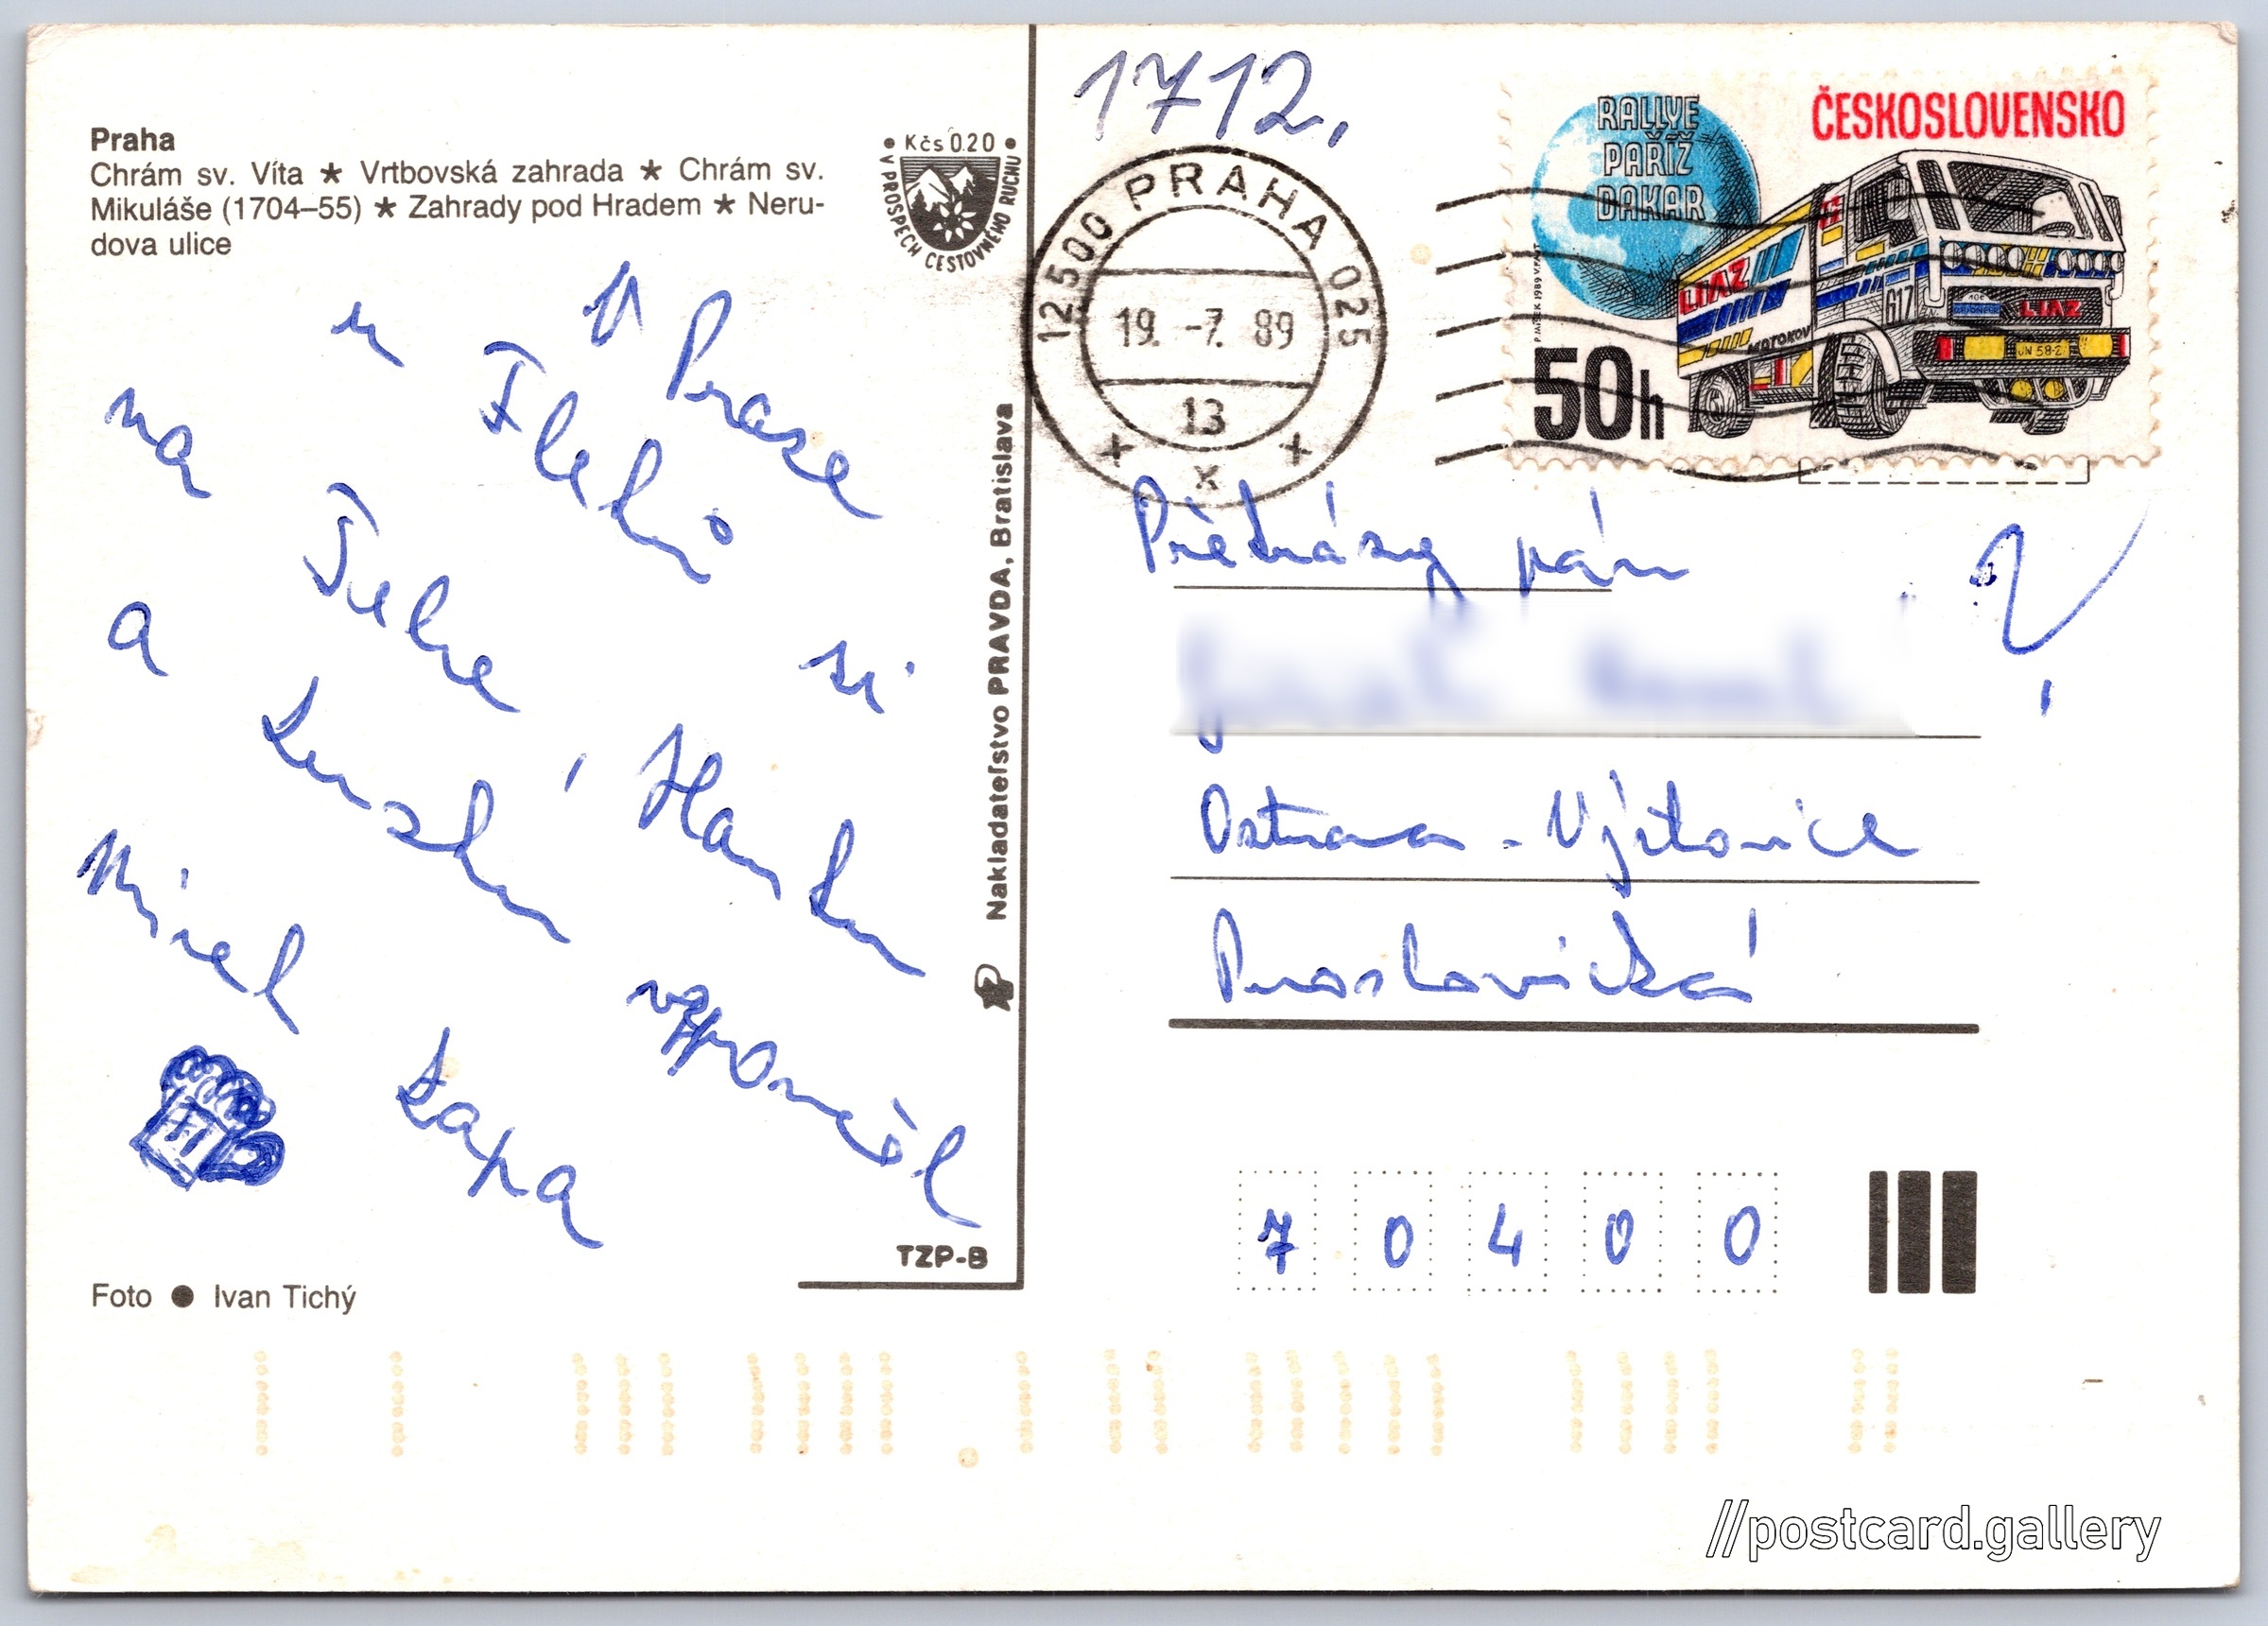 Praha
Chrám sv. Víta ★ Vrtbovská zahrada ★ Chrám sv.
Mikuláše (1704–55) ★ Zahrady pod Hradem ★ Neru-
dova ulice
• Kčs 0.20 •
V PROSPECH CESTOVNÉHO RUCHU
V Praze
u Fleků
na
si
a
Hanku
vzpomněl
Mirek
Kapa
Foto ● Ivan Tichý
TZP-B
Nakladateľstvo PRAVDA, Bratislava
1712.
125 00 PRAHA 025
19. -7. 89
13
RALLYE
PAŘÍŽ
DAKAR
ČESKOSLOVENSKO
50h
LIAZ
MOTOKOV
617
LIAZ
pán
Ostrava - Výškovice
Proskovická
7 0 4 0 0
//postcard.gallery